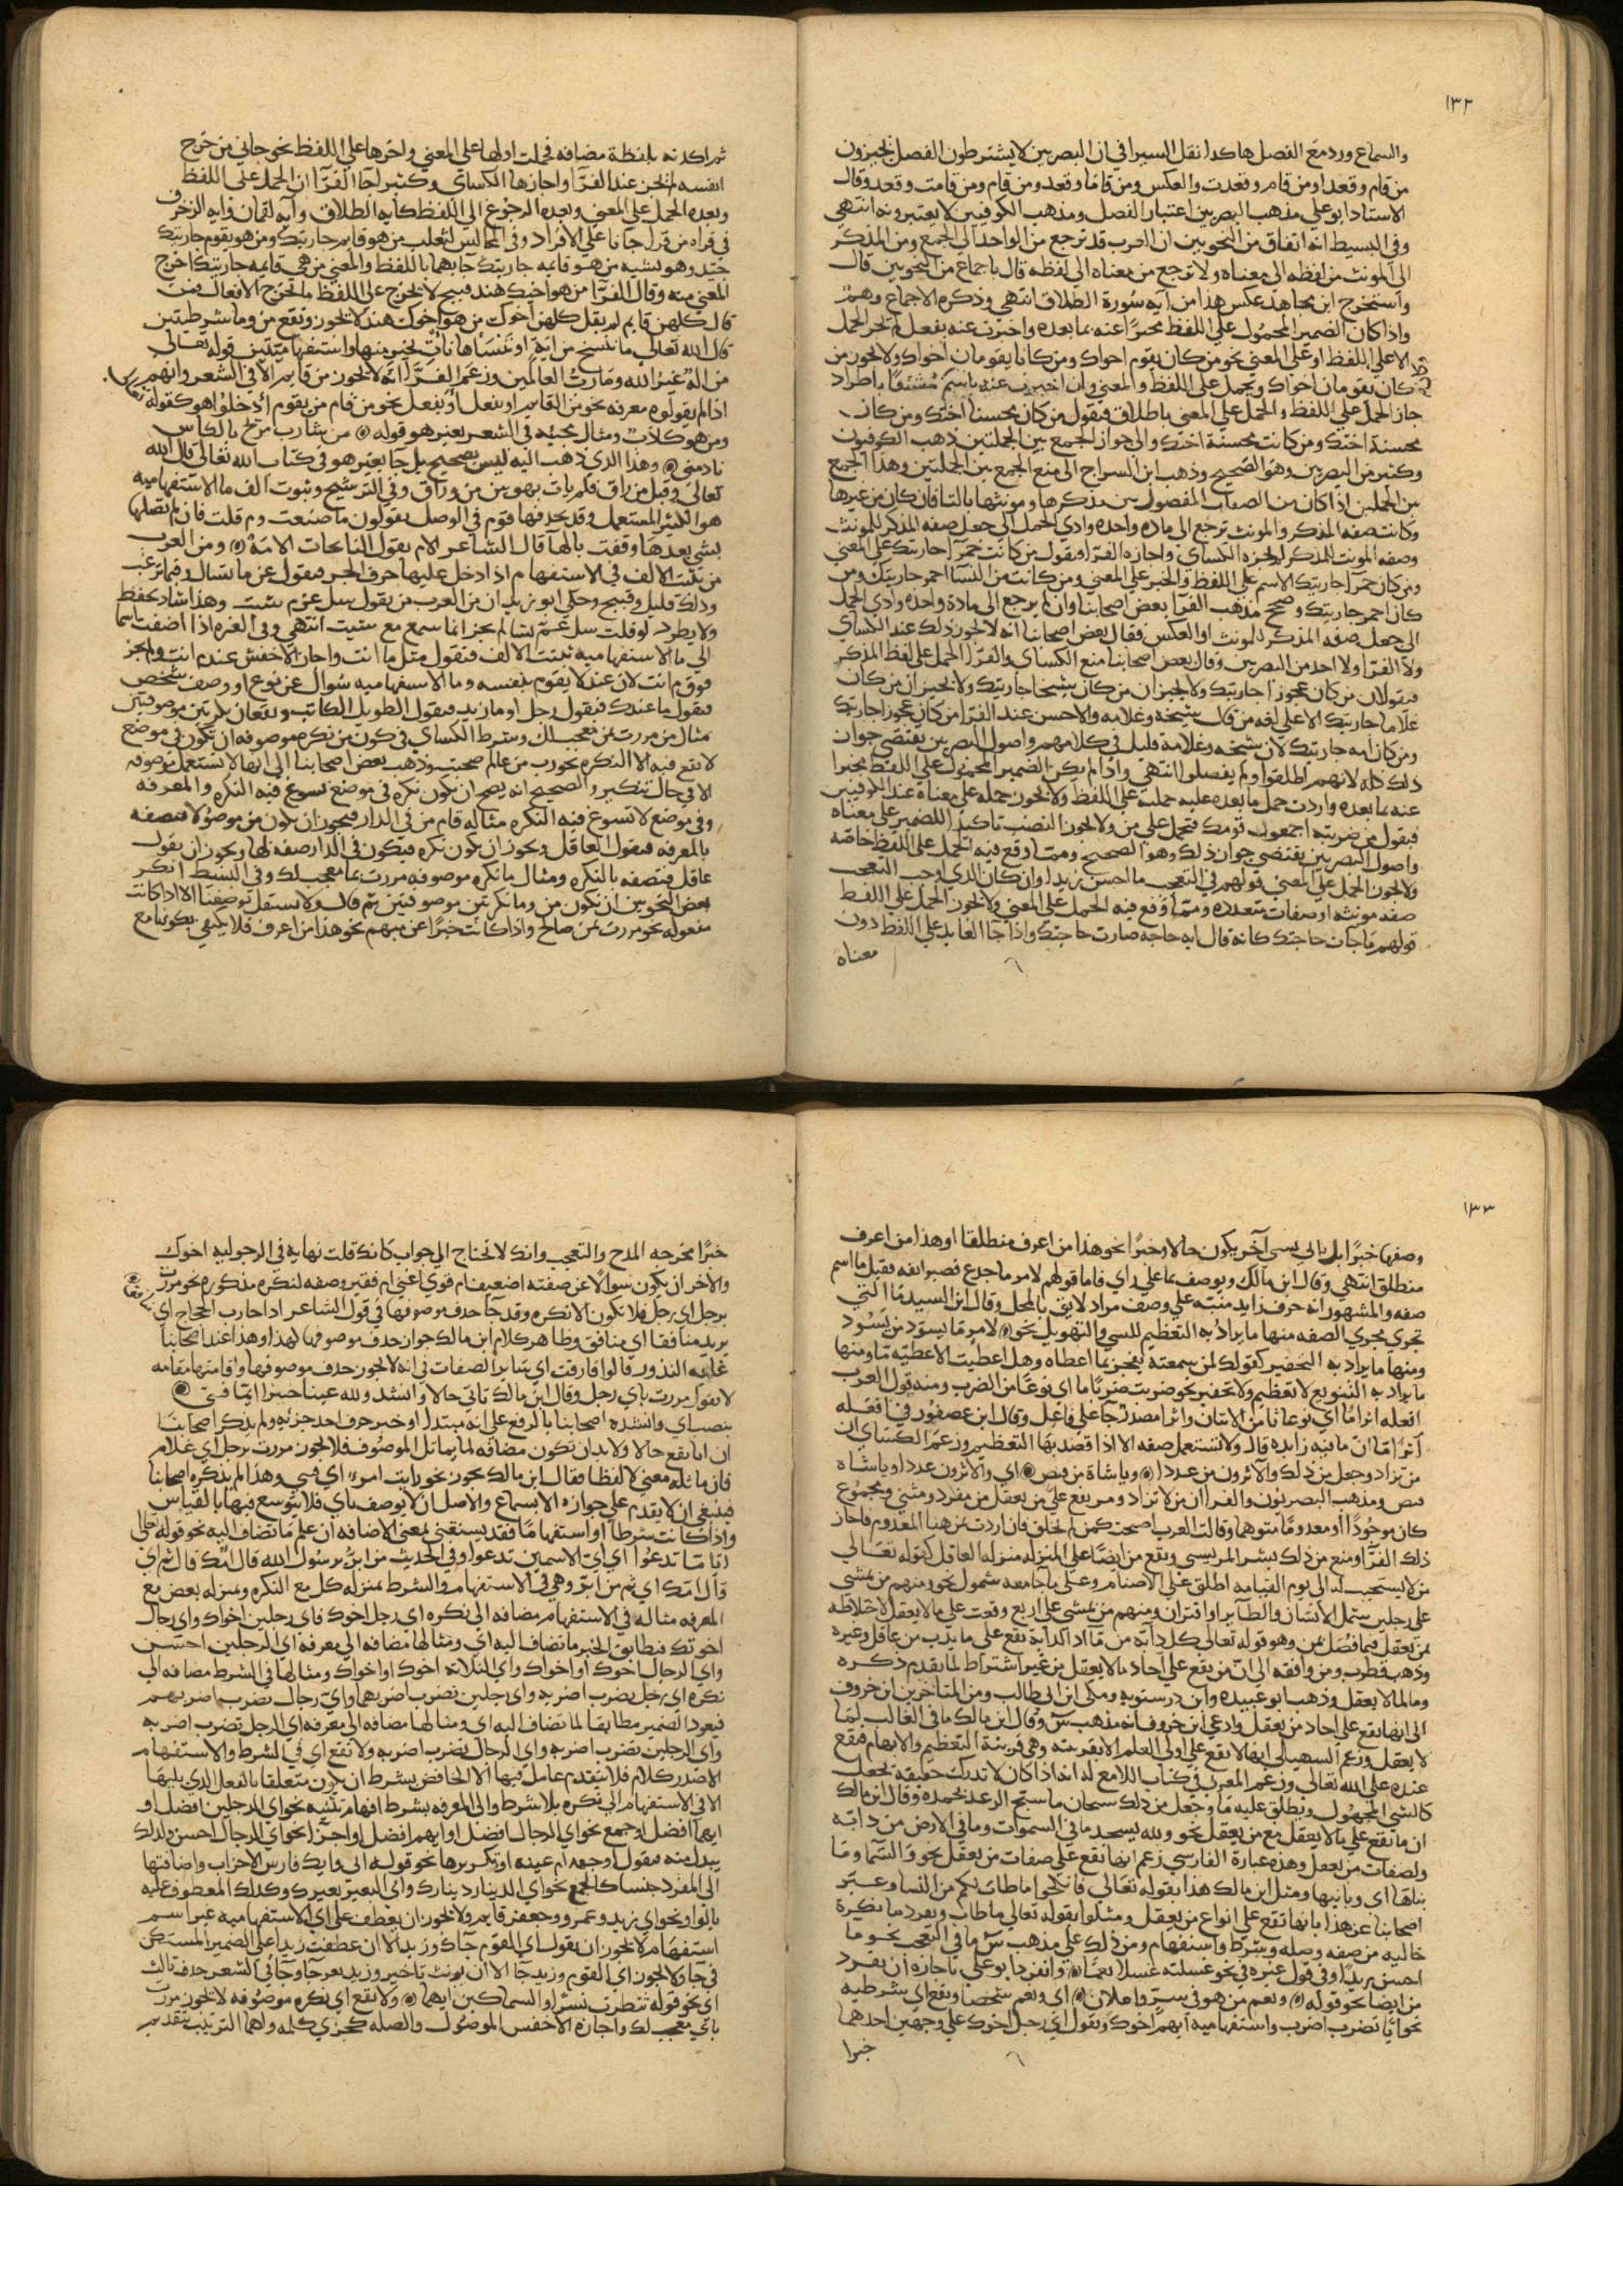 ١٣٢
والسماع ورد مع الفصل هاكدا نقل السيرافي ان البصريين لا يشترطون الفصل فيجيزون
من قام وقعدا ومن قام وقعدت والعكس ومن قاما وقعد ومن قام ومن قامت وقعد وقال
الاستاد ابو علي مذهب البصريين اعتبار الفصل ومذهب الكوفيين لا يعتبرونه انتهي
وفي البسيط انه اتفاق من النحويين ان العرب قد ترجع من الواحد الي الجمع ومن المذكر
الي المونث من لفظه الي معناه ولا ترجع من معناه الي لفظه قال باجماع من النحويين قال
واستخرج ابن مجاهد عكس هذا من آيه سورة الطلاق انتهي وذكره الاجماع وهم
واذا كان الضمير المحمول علي اللفظ مخبرا عنه بما بعده واخبرت عنه بفعل لم يجز الحمل
الا علي اللفظ او علي المعني نحو من كان يقوم اخواك ومن كانا يقومان اخواك ولا يجوز من
كان يقومان اخواك ويحمل علي اللفظ والمعني وان اخبرت عنه باسم مشتق
جاز الحمل علي اللفظ والحمل علي المعني باطلاق فيقول من كان محسنا اختك ومن كان
محسنة اختك ومن كانت محسنة اختك والي جواز الجمع بين الجملتين ذهب الكوفيون
وكثير من البصريين وهو الصحيح وذهب ابن السراج الي منع الجمع بين الجملتين وهذا الجمع
بين الحملين اذا كان من الصفات المفصول بين مذكرها ومونثها بالتا فان كان من غيرها
وكانت صفه المذكر والمونث ترجع الي ماده واحده وادي الحمل الي جعل صفه المذكر للمونث
وصفه المونث للمذكر لم يجزه الكساي واجازه الفرا فيقول من كانت حمرا جاريتك علي المعني
ومن كان حمرا جاريتك الاسم علي اللفظ والخبر علي المعني ومن كانت من النسا احمر جاريتك ومن
كان احمر جاريتك وصحح مذهب الفرا بعض اصحابنا وان لم يرجع الي مادة واحده وادي الحمل
الي جعل صفه المذكر للمونث او العكس فقال بعض اصحابنا انه لا يجوز ذلك عند الكساي
ولا الفرا ولا احد من البصريين وقال بعض اصحابنا منع الكساي والفرا الحمل علي لفظ المذكر
فيقولان من كان عجوزا جاريتك ولا يجيزان من كان شيخا جاريتك ولا يجيزان من كان
غلاما جاريتك الا علي لغه من قال شيخه وغلامه والاحسن عند الفرا من كان عجوزا جاريتك
ومن كان امه جاريتك لان شيخه وغلامة قليل في كلامهم واصول البصريين يقتضي جواز
ذلك كله لانهم اطلقوا ولم يفصلوا انتهي واذا لم يكن الضمير المحمول علي اللفظ مخبرا
عنه بما بعده واردت حمل ما بعده عليه حمليه علي اللفظ ولا يجوز حمله علي معناه عند الكوفيين
فيقول من ضربته اجمعون قومك فتحمل علي من ولا يجوز النصب تاكيدا للضمير علي معناه
واصول البصريين يقتضي جواز ذلك وهو الصحيح ومما وقع فيه الحمل علي اللفظ خاصه
ولا يجوز الحمل علي المعني قولهم في التعجب ما احسن زيدا وان كان الذي اوجب التعجب
صفه مونثه او صفات متعدده ومما وقع فيه الحمل علي المعني ولا يجوز الحمل علي اللفظ
قولهم ما جات حاجتك كانه قال ايه حاجه صارت حاجتك واذا جا العايد علي اللفظ دون
معناه
ثم اكد ته بلفظة مضافه فحملت اولها علي المعني واخرها علي اللفظ نحو جاني من خرج
انفسهم لحن عند الفرا واجازها الكساي وكثير لجا الفرا ان الحمل علي اللفظ
وبعده الحمل علي المعني وبعده الرجوع الي اللفظ كايه الطلاق وآيه لقمان وايه الزخرف
في قراه من قرا جانا علي الافراد وفي المجالس لثعلب من هو قايم جاريتك ومن هو يقوم جاريتك
جيد وهو يشبه من هو قايمه جاريتك جا بهما باللفظ والمعني من هي قايمه جاريتك اخرج
المعني منه وقال الفرا من هو اختك هند قبيح لا يخرج علي اللفظ ما يخرج الافعال فمن
قال كلهن قايم لم يقل كلهن اخوك من هو اخوك هند لا يجوز وتقع من وما شرطيتين
قال الله تعالي ما ننسخ من اية او ننسأها نات بخير منها واستفهاميتين قوله تعالي
من اله غير الله وما رب العالمين وزعم الفرا انه لا يجوز من قايم الا في الشعر وانهم
اذا لم يقولوه معرفه نحو من القايم او بفعل او يفعل نحو من قام من يقوم ادخلوا هو كقوله
ومن هو كلات ومثال مجيئه في الشعر بغير هو قوله ⊙ من شارب مرتج بالكاس
نادمني ⊙ وهذا الذي ذهب اليه ليس بصحيح بل جا بغير هو في كتاب الله تعالي قال الله
تعالي وقيل من راق فلم يات بهو بين من وراق وفي الترشيح وثبوت الف ما الاستفهاميه
هو الكثير المستعمل وقد يحذفها قوم في الوصل يقولون ما صنعت وم قلت فان لم تصلها
بشي بعدها وقفت بالها قال الشاعر الام يقول الناعيات الا مه ⊙ ومن العرب
من يثبت الالف في الاستفهام اذا دخل عليها حرف الجر فيقول عن ما تسال وفيما ترغب
وذلك قليل وقبيح وحكي ابو زيد ان من العرب من يقول سل عن م شئت وهذا شاذ يحفظ
ولا يطرد لو قلت سل عم تشا لم يجز انما سمع مع شيت انتهي وفي الغره اذا اضفت اسما
الي ما الاستفهاميه ثبتت الالف فتقول مثل ما انت واجاز الاخفش عند م انت ولم يجز
فوق م انت لان عند لا يقوم بنفسه وما الاستفهاميه سوال عن نوع او وصف شخص
فيقول ما عندك فيقول رجل او ما زيد فيقول الطويل الكاتب وتقعان نكرتين موصوفتين
مثال من مررت بمن معجب لك وشرط الكساي في كون من نكره موصوفه ان يكون في موضع
لا تقع فيه الا النكره نحو رب من عالم صحبت وذهب بعض اصحابنا الي انها لا تستعمل موصوفه
الا في حال تنكير والصحيح انه يصح ان يكون نكره في موضع تسوغ فيه النكره والمعرفه
وفي موضع لا تسوغ فيه النكره مثاله قام من في الدار فيجوز ان يكون من موصولا فتصفه
بالمعرفه فيقول العاقل ويجوز ان يكون نكره فيكون في الدار صفه لها ويجوز ان يقول
عاقل فتصفه بالنكره ومثال ما نكره موصوفه مررت بما معجب لك وفي البسيط انكر
بعض النحويين ان تكون من وما نكرتين موصوفتين ثم قال ولا تستقل توصيفنا الا اذا كانت
مفعوله نحو مررت بمن صالح واذا كانت خبرا عن مبهم نحو هذا من اعرف فلا يكتفي بكونها مع
١٣٣
وصفها خبرا بل تالي بشي آخر يكون حالا او خبرا نحو هذا من اعرف منطلقا او هذا من اعرف
منطلق انتهي وقال ابن مالك ويوصف بما علي راي فاما قولهم لامر ما جدع قصير انفه فقيل ما اسم
صفه والمشهور انه حرف زايد منبه علي وصف مراد لايق بالمحل وقال ابن السيد ما التي
تجري مجري الصفه منها ما يراد به التعظيم للشي والتهويل نحو ⊙ لامر ما يسود من يسود
ومنها ما يراد به التحقير كقولك لمن سمعته يفخر بما اعطاه وهل اعطيت الا عطيه ما ومنها
ما يراد به التنويع لا تعظيم ولا تحقير نحو ضربت ضربا ما اي نوعا من الضرب ومنه قول العرب
افعله اثرا ما اي نوعا ما من الاثيان واثرا مصدر جا علي فاعل وقال ابن عصفور في افعله
آثرا ما ان ما فيه زايده قال ولا تستعمل صفه الا اذا قصد بها التعظيم وزعم الكساي ان
من تزاد وجعل من ذلك والاثرون من عددا ⊙ ويا شاة من قنص ⊙ اي والاثرون عددا ويا شاه
قنص ومذهب البصريون والفرا ان من لا تزاد ومن يقع علي من يعقل من مفرد ومثني ومجموع
كان موجودا او معدوما متوهما وقالت العرب اصبحت كمن لم يخلق فان اردت بمن هنا المعدوم فاجاز
ذلك الفرا ومنع من ذلك بشر المريسي وتقع من ايضا علي المنزله منزله العاقل كقوله تعالي
من لا يستجيب له الي يوم القيامه اطلق علي الاصنام وعلي ما جامعه شمول نحو ومنهم من يمشي
علي رجلين شمل الانسان والطاير او اقتران ومنهم من يمشي علي اربع وقعت علي ما لا يعقل لاختلاطه
بمن يعقل فيما فصل بمن وهو قوله تعالي كل دابه من ما اذ الدابة تقع علي ما يدب من عاقل وغيره
وذهب قطرب ومن وافقه الي ان من يقع علي احاد ما لا يعقل من غير اشتراط لما تقدم ذكره
وما لما لا يعقل وذهب ابو عبيده وابن درستويه ومكي ابن ابي طالب ومن المتاخرين ابن خروف
الي انها تقع علي احاد من يعقل وادعي ابن خروف انه مذهب س وقال ابن مالك ما في الغالب لما
لا يعقل وزعم السهيلي انها لا تقع علي اولي العلم الا بقرينه وهي قرينة التعظيم والابهام فتقع
عنده علي الله تعالي وزعم المعري في كتاب اللامع له انه اذا كان لا تدرك حقيقه تجعل
كالشي المجهول ويطلق عليه ما وجعل من ذلك سبحان ما سبح الرعد بحمده وقال ابن مالك
ان ما تقع علي ما لا يعقل مع من يعقل نحو ولله يسجد ما في السموات وما في الارض من دابه
ولصفات من يعقل وهذه عبارة الفارسي زعم انها تقع علي صفات من يعقل نحو والسما وما
بناها اي وبانيها ومثل ابن مالك هذا بقوله تعالي فانكحوا ما طاب لكم من النسا وعبر
اصحابنا عن هذا بانها تقع علي انواع من يعقل ومثلوا بقوله تعالي ما طاب وتفرد ما نكرة
خاليه من صفه وصله وشرط واستفهام ومن ذلك علي مذهب س ما في التعجب نحو ما
احسن زيدا وفي قول غيره في نحو غسلته غسلا نعما ⊙ وانفرد ابو علي باجازه ان تفرد
من ايضا نحو قوله ⊙ ونعم من هو في سر واعلان ⊙ اي ونعم شخصا وتقع اي شرطيه
نحو ايا تضرب اضرب واستفهاميه ايهم اخوك وتقول اي رجل اخوك علي وجهين احدهما
خبرا
خبرا مخرجه المدح والتعجب وانك لا تحتاج الي جواب كانك قلت نهايه في الرجوليه اخوك
والاخر ان يكون سوالا عن صفته اضعيف ام قوي اغني ام فقير وصفه لنكره مذكوره نحو مررت
برجل اي رجل فلا تكون الا نكره وقد جا حذف موصوفها في قول الشاعر اذا حارب الحجاج اي
يريد منافقا اي منافق وظاهر كلام ابن مالك جواز حذف موصوف اي لهذا وهذا عند اصحابنا
غايه الندور قالوا فارقت اي ساير الصفات في انه لا يجوز حذف موصوفها واقامتها مقامه
لا تقول مررت باي رجل وقال ابن مالك تاتي حالا وانشد ولله عينا حبتر ايما فتي ⊙
بنصب اي وانشده اصحابنا بالرفع علي انه مبتدا او خبر حذف احد جزئيه ولم يذكر اصحابنا
ان ايا تقع حالا ولا بد ان تكون مضافه لما يماثل الموصوف فلا يجوز مررت برجل اي غلام
فان ماثله معني لا لفظا فقال ابن مالك يجوز نحو رايت امرءا اي فتي وهذا لم يذكره اصحابنا
فينبغي ان لا يقدم علي جوازه الا بسماع والاصل ان لا يوصف باي فلا يتوسع فيها بالقياس
واذا كانت شرطا او استفهاما فقد يستغني بمعني الاضافه ان علم ما تضاف اليه نحو قوله تعالي
ايا ما تدعوا اي اي الاسمين تدعوا وفي الحديث من ابر يرسول الله قال امك قال ثم اي
قال امك اي ثم من ابر وهي في الاستفهام والشرط بمنزله كل مع النكره وبمنزله بعض مع
المعرفه مثاله في الاستفهام مضافه الي نكره اي رجل اخوك فاي رجلين اخواك واي رجال
اخوتك فتطابق الخبر ما تضاف اليه اي ومثالها مضافه الي معرفه اي الرجلين احسن
واي الرجال اخوك او اخواك واي الثلاثه اخوك او اخواك ومثالها في الشرط مضافه الي
نكره اي رجل يضرب اضربه واي رجلين تضرب اضربهما واي رجال يضرب اضربهم
فيعود الضمير مطابقا لما تضاف اليه اي ومثالها مضافه الي معرفه اي الرجل تضرب اضربه
واي الرجلين تضرب اضربه واي الرجال يضرب اضربه ولا تقع اي في الشرط والاستفهام
الا صدر كلام فلا يتقدم عامل فيها الا الخافض بشرط ان يكون متعلقا بالفعل الذي يليها
الا في الاستفهام الي نكره بلا شرط والي المعرفه بشرط افهام تثنيه نحو اي الرجلين افضل او
ايهما افضل او جمع نحو اي الرجال افضل او ايهم افضل او اجزا نحو اي الرجال احسن ولذلك
يبدل منه فيقول اوجهه ام عينه او تكريرها نحو قوله ايي وايك فارس الاحزاب واضافتها
الي المفرد جنسا كالجمع نحو اي الدينار دينارك واي البعير بعيرك وكذلك المعطوف عليه
بالواو نحو اي زيد وعمرو وجعفر قايم ولا يجوز ان يعطف علي اي الاستفهاميه غير اسم
استفهام لا يجوز ان تقول اي القوم جاك وزيدا لا ان عطفت زيدا علي الضمير المستكن
في جا ولا يجوز اي القوم وزيد جا الا ان نويت تاخير وزيد بعد جا وجا في الشعر حذف ثالث
اي نحو قوله تنظرت نسرا والسماكين ايهما ⊙ ولا تقع اي نكره موصوفه لا يجوز مررت
باي معجب لك واجازه الاخفش الموصول والصله كجزي كلمه ولهما الترتيب بتقديم